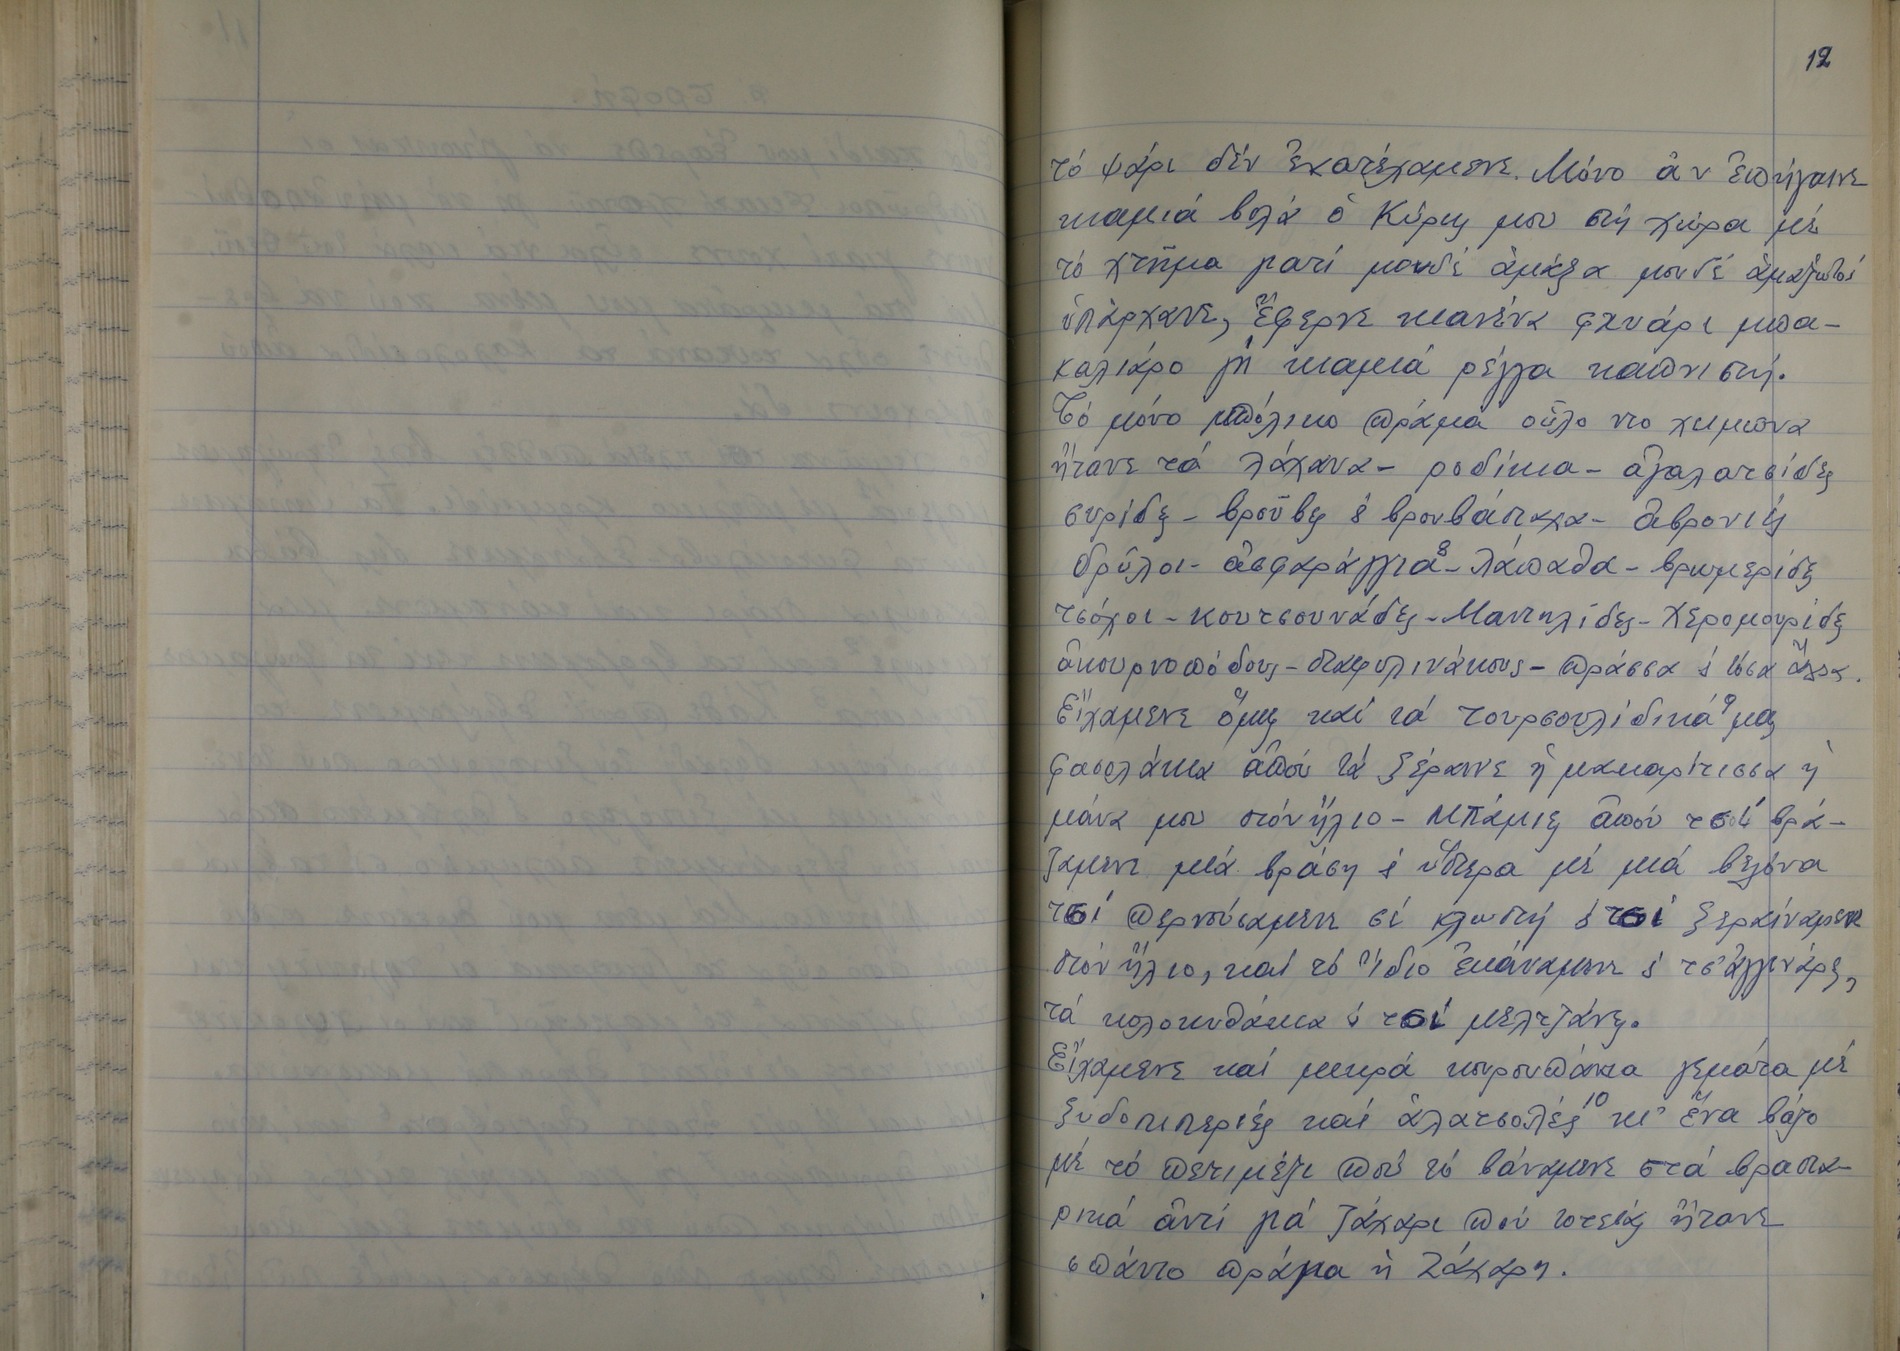 12
τό ψάρι δέν ἐκατέχαμενε. Μόνο ἄν ἐπήγαινε
καμιά βολά ὁ Κύρης μου στή χώρα μέ
τό χτῆμα γιατί μουδέ ἀμάξα μουδέ ἁμαξωτοί
ὑπάρχανε, ἤφερνε κιανένα φχυάρι μπα-
καλιάρο γή καμιά ρέγγα καπνιστή.
Τό μόνο μπόλικο πρᾶμα οὗλο ντο χειμώνα
ἤτανε τά λάχανα - ροδίκια - ἀγαλατσίδες
συρίδες - βροῦβες & βρουβάσταχα - ἀβρονιές
δρύλοι - ἀσφαράγγια⁸ - λάπαθα - βρωμερίδες
τσόχοι - κουτσουνάδες - Μαντηλίδες - Χερομουρίδες
ἀκουρνοπόδους - σταφυλινάκους - πράσσα & τόσα ἄλλα.
Εἴχαμενε ὅμως καί τά τουρσουλιδικά⁹ μας
φασολάκια ἀπού τά ξέραινε ἡ μακαρίτισσα ἡ
μάνα μου στόν ἥλιο - Μπάμιες ἀπού τσί βρά-
ζαμενε μιά βράση & ὕστερα μέ μιά βελόνα
τσί περνούσαμενε σέ κλωστή & τσί ξεραίναμενε
στόν ἥλιο, καί τό ἴδιο ἐκάναμενε & τσ' ἀγγινάρες,
τά κολοκυθάκια & τσί μελτζάνες.
Εἴχαμενε καί μικρά κουρουπάκια γεμάτα μέ
ξυδοπιπεριές καί ἀλατσολές¹⁰ κι' ἕνα βάζο
μέ τό πετιμέζι πού τό βάναμενε στά βραστα-
ρικά ἀντί γιά ζάχαρι πού τοτεσάς ἤτανε
σπάνιο πράμα ἡ ζάχαρη.